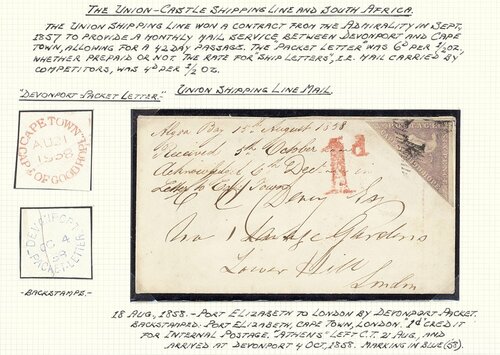 THE UNION-CASTLE SHIPPING LINE AND SOUTH AFRICA.
THE UNION SHIPPING LINE WON A CONTRACT FROM THE ADMIRALITY IN SEPT,
1857 TO PROVIDE A MONTHLY MAIL SERVICE, BETWEEN DEVONPORT AND CAPE
TOWN, ALLOWING FOR A 42 DAY PASSAGE. THE PACKET LETTER WAS 6D PER 1/2 OZ,
WHETHER PREPAID OR NOT THE RATE FOR "SHIP LETTERS", I.E. MAIL CARRIED BY
COMPETITORS, WAS 4D PER 1/2 OZ.
"DEVONPORT PACKET LETTER."
UNION SHIPPING LINE MAIL.
CAPE TOWN
AU 21
1858
OF GOOD HOPE
DEVONPORT
OC 4
58
PACKET-LETTER
-BACKSTAMPS.-
Algoa Bay 15th August 1858
Received 5th October
Acknowledged 6th
Letter to Cape Town
1d
Esq
No 1 Gardens
Lower
London
18 AUG, 1858.- PORT ELIZABETH TO LONDON BY DEVONPORT PACKET.
BACKSTAMPED: PORT ELIZABETH, CAPE TOWN, LONDON. "1d" CREDIT
FOR INTERNAL POSTAGE. "ATHENS" LEFT C.T. 21 AUG, AND
ARRIVED AT DEVONPORT 4 OCT, 1858. MARKING IN BLUE (58).